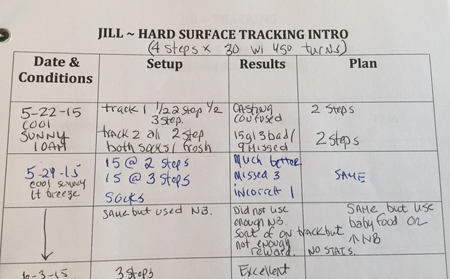 JILL ~ HARD SURFACE TRACKING INTRO
(4 steps x 30 w/ 450 turns)
Date & Conditions
Setup
Results
Plan
5-22-15
COOL
SUNNY
10AM
track 1 1/2 2 step 1/2
3 step.
track 2 all 2 step
both socks / frosh
Casting
confused
15g 13 bad /
9 missed
2 steps
2 steps
5-29-15
cool sunny
lt breeze
15 @ 2 steps
15 @ 3 steps
socks
Much better
missed 3
incorrect 1
SAME
same but used NB.
Did not use
enough NB.
Sort of on track but
not enough
reward.
SAME but use
baby food OR
↑ NB
NO STATS.
-3-15
3 steps
Excellent